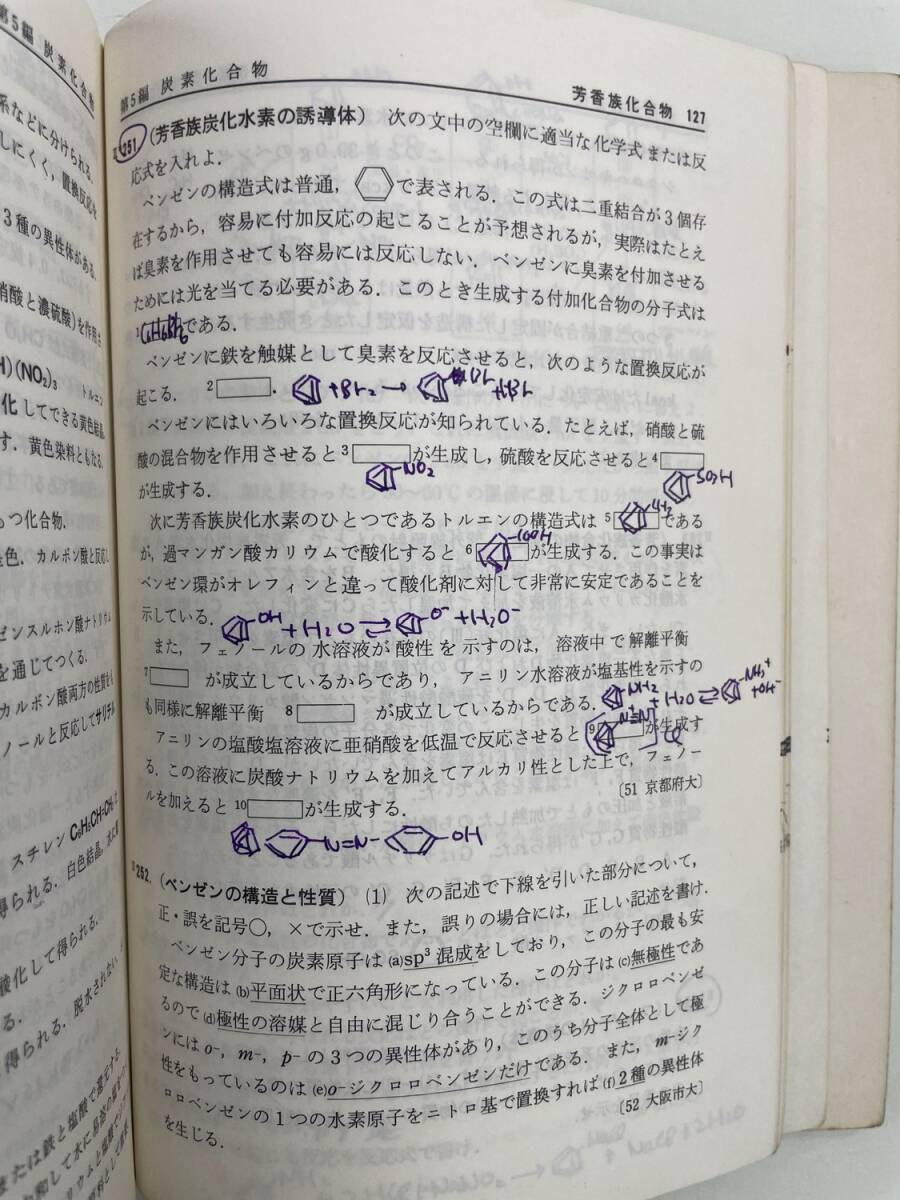 第5編 炭素化合物
系などに分けられる.
しにくく, 置換反応を
3種の異性体がある.
硝酸と濃硫酸)を作用さ
H)(NO₂)₃
トルエン
化してできる黄色結晶.
す. 黄色染料ともなる.
もつ化合物.
色. カルボン酸と反応し
ゼンスルホン酸ナトリウム
を通じてつくる.
カルボン酸両方の性質をも
ノールと反応してサリチル
スチレン C₆H₅CH=CH₂と
得られる. 白色結晶. 水に
酸化して得られる.
る.
得られる. 脱水されない.
または鉄と塩酸で還元する.
第5編 炭素化合物
芳香族化合物 127
251 (芳香族炭化水素の誘導体) 次の文中の空欄に適当な化学式または反
応式を入れよ.
ベンゼンの構造式は普通, で表される. この式は二重結合が3個存
在するから, 容易に付加反応の起こることが予想されるが, 実際はたとえ
ば臭素を作用させても容易には反応しない. ベンゼンに臭素を付加させる
ためには光を当てる必要がある. このとき生成する付加化合物の分子式は
1 C₆H₆Br₆ である.
ベンゼンに鉄を触媒として臭素を反応させると, 次のような置換反応が
起こる. 2 . +Br₂ → Br +HBr
ベンゼンにはいろいろな置換反応が知られている. たとえば, 硝酸と硫
酸の混合物を作用させると 3 が生成し, 硫酸を反応させると 4
NO₂
SO₃H
が生成する.
次に芳香族炭化水素のひとつであるトルエンの構造式は 5 CH₃ である
が, 過マンガン酸カリウムで酸化すると 6 COOH が生成する. この事実は
ベンゼン環がオレフィンと違って酸化剤に対して非常に安定であることを
示している.
OH +H₂O ⇌ O⁻ +H₃O⁻
また, フェノールの水溶液が酸性を示すのは, 溶液中で解離平衡
7 が成立しているからであり, アニリン水溶液が塩基性を示すの
も同様に解離平衡 8 が成立しているからである. NH₂ +H₂O ⇌ NH₃⁺ +OH⁻
アニリンの塩酸塩溶液に亜硝酸を低温で反応させると 9 N≡N Cl が生成す
る. この溶液に炭酸ナトリウムを加えてアルカリ性とした上で, フェノー
ルを加えると 10 が生成する.
〔51 京都府大〕
N=N- -OH
252. (ベンゼンの構造と性質) (1) 次の記述で下線を引いた部分について,
正・誤を記号○, ×で示せ. また, 誤りの場合には, 正しい記述を書け.
ベンゼン分子の炭素原子は (a)sp³ 混成をしており, この分子の最も安
定な構造は (b)平面状で正六角形になっている. この分子は (c)無極性であ
るので (d)極性の溶媒と自由に混じり合うことができる. ジクロロベンゼ
ンには o-, m-, p- の3つの異性体があり, このうち分子全体として極
性をもっているのは (e)o-ジクロロベンゼンだけである. また, m-ジク
ロロベンゼンの1つの水素原子をニトロ基で置換すれば (f)2種の異性体
を生じる.
〔52 大阪市大〕